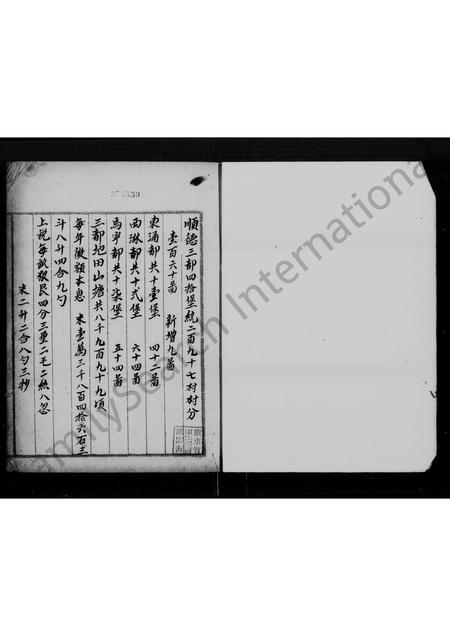 順德三部四拾堡統二百九十七村村分
壹百六十啚 新增九啚
東涌都共十壹堡 四十二啚
西淋都共十弍堡 六十四啚
馬寧都共十柒堡 五十四啚
三都地田山塘共八千九百九十九頃
每年徵額本息 米壹萬三千八百四拾六石三
斗八升四合九勺
上稅每畝敘民四分三厘二毛二絲八忽
米二升二合八勺三抄
FamilySearch International